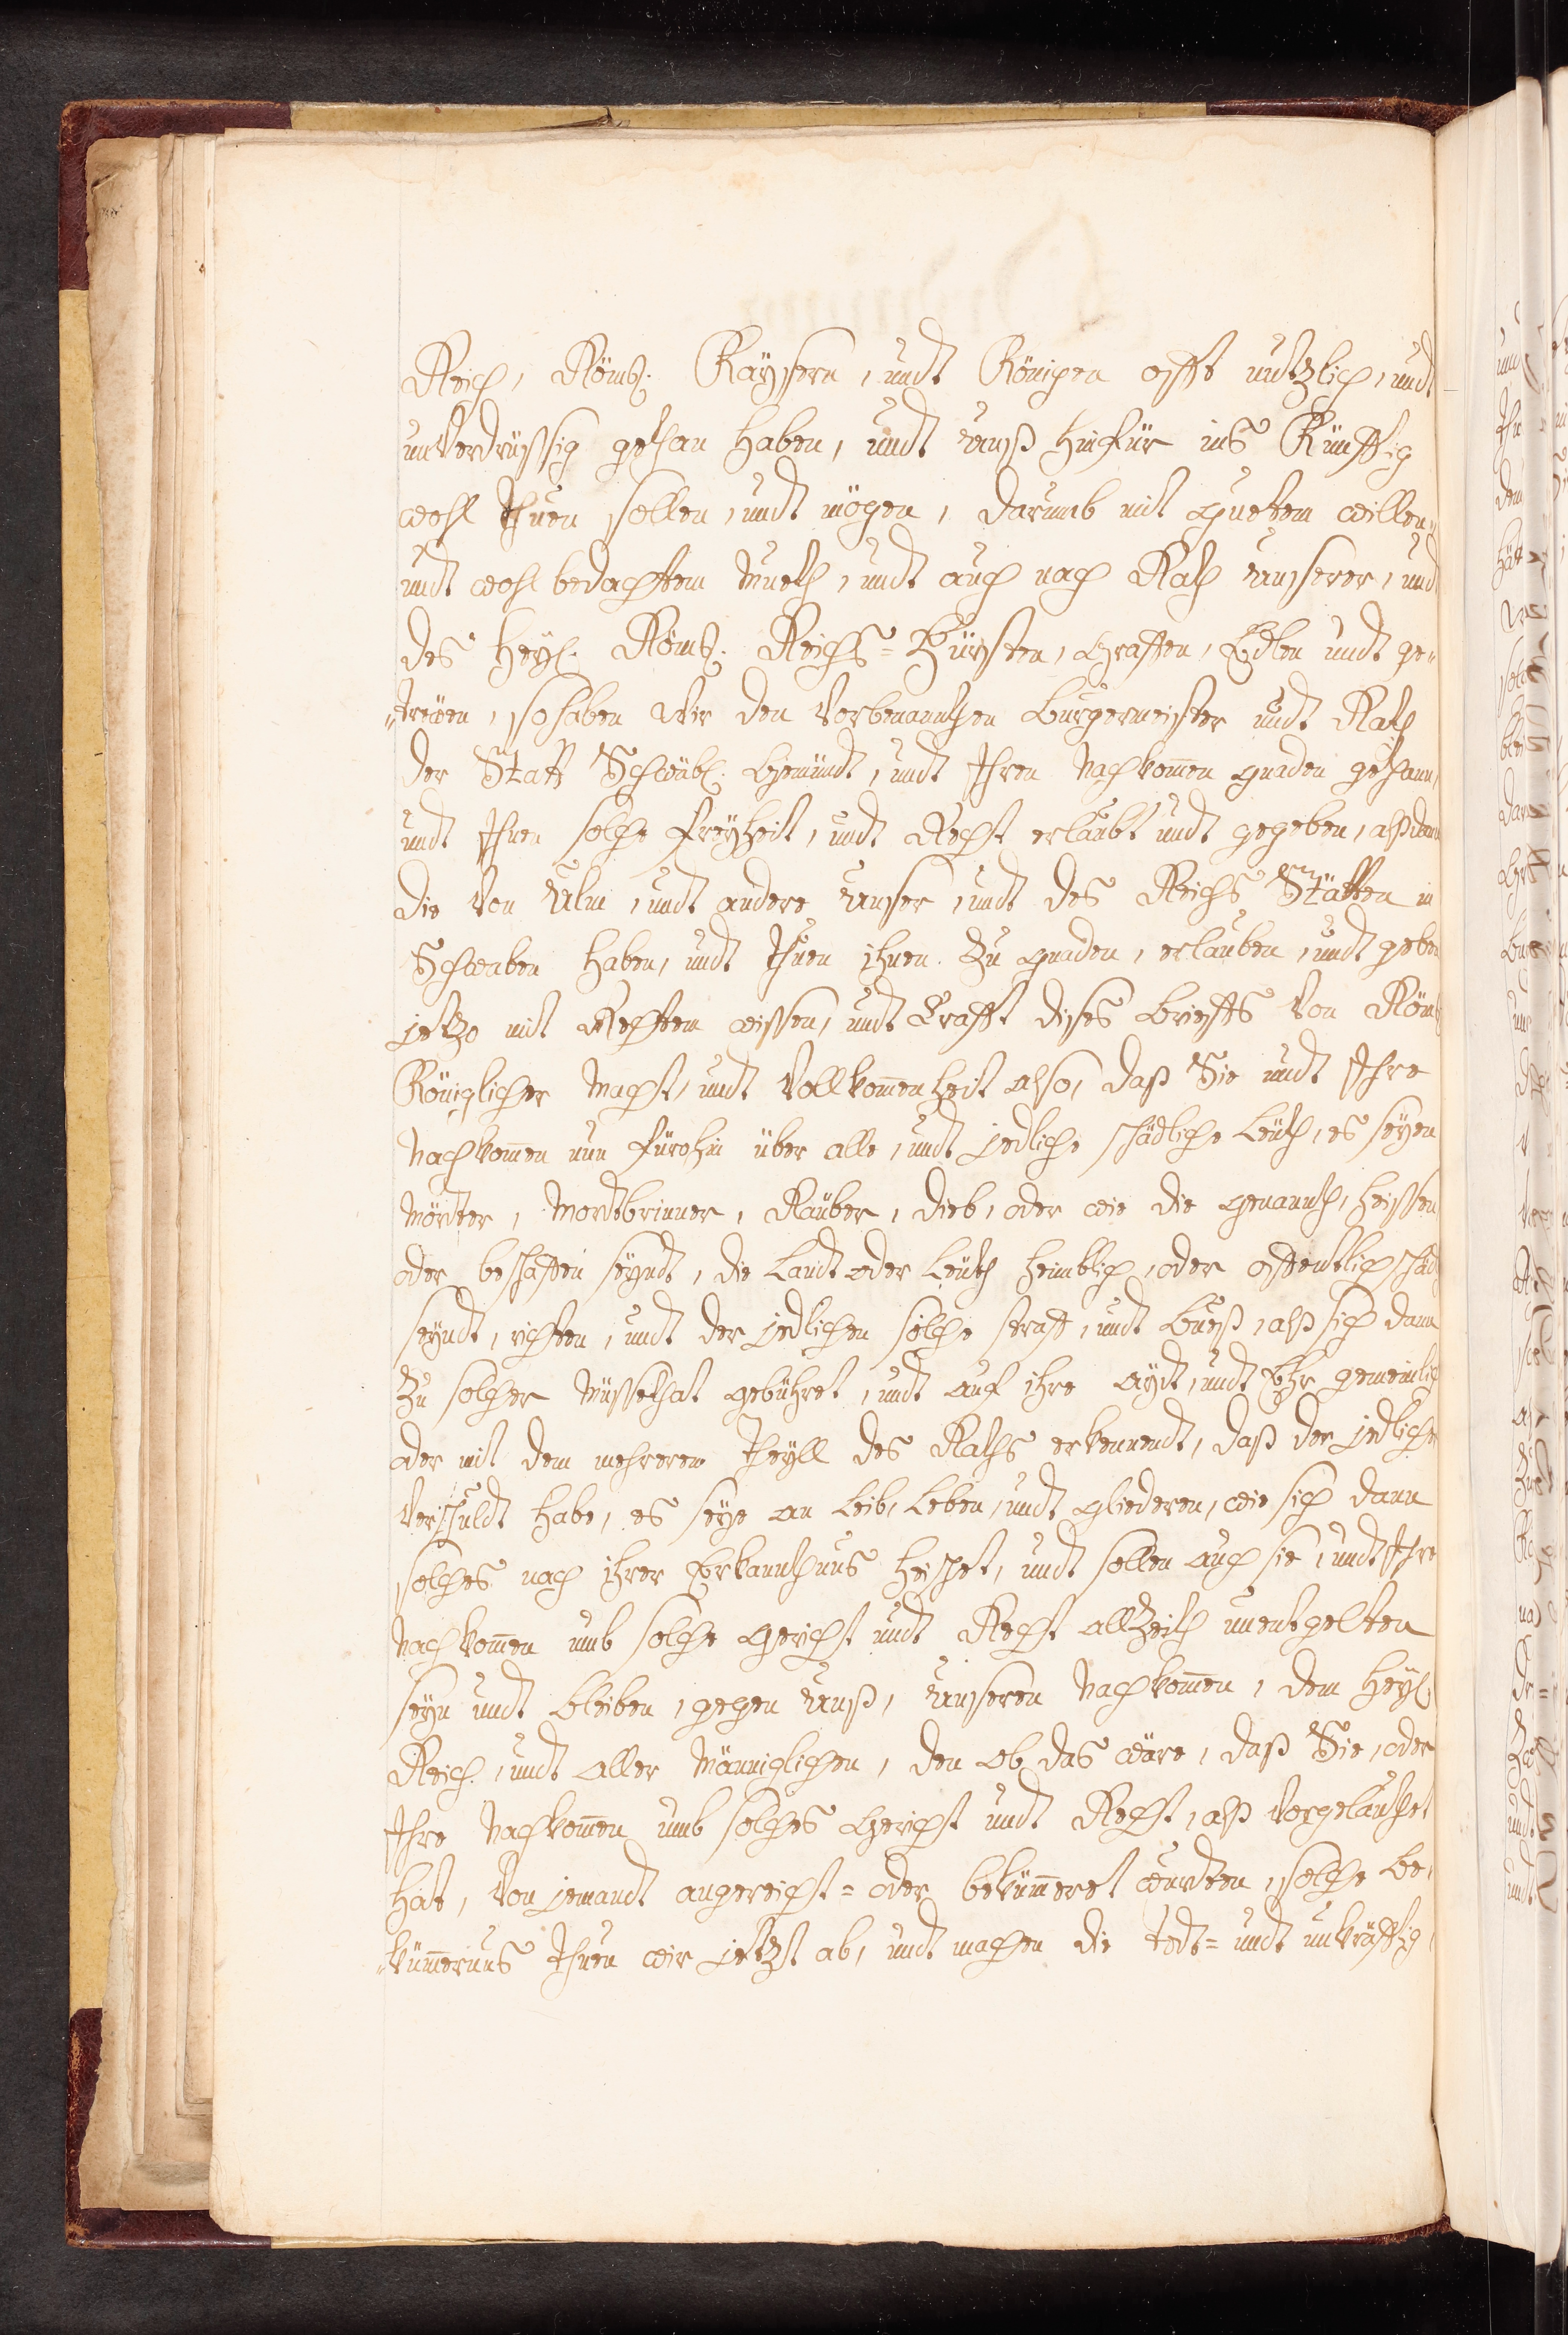 Reich, Röms. Kaysern, undt Königen offt nutzlich, undt
unverdrüssig gethan haben, undt unß hinfür ins Künfftig
wohl thuen sollen, undt mögen, darumb mit guetem willen,
undt wohl bedachtem Mueth, undt auch nach Rath unserer, und
des Heyl. Röms. Reichs=Fürsten, Graffen, Edlen undt ge-
„treüen, so haben Wir den Vorbenannthen Burgermeister undt Rath
der Statt Schwäbl. Gemündt, undt Ihren Nachkom̄en gnaden gethann,
undt Ihnen solche Freyheit, undt Recht erlaubt undt gegeben, alß dann
die Von Ulm, undt andere Unser, undt des Reichs Stätten in
Schwaben haben, undt thuen ihnen zu gnaden, erlauben, undt geben
jetzo mit Rechtem wissen, undt Crafft dises Brieffs Von Röms
Königlicher Macht, undt Vollkom̄enheit also, daß Sie undt Ihre
Nachkom̄en nun fürohin über alle, undt jedliche schädliche Leüth, es seyen
Mörder, Mordtbrinner, Räuber, Dieb, oder wie die genannth, heissen
oder beschaffen seyndt, die Landt oder Leüth heimblich, oder offentlich schäd
seyndt, richten, undt der jedlichen solche straff, undt Bueß, alß sich dann
zu solcher Müssethat gebühret, undt auf ihre Aydt, undt Ehr gemeinlich
oder mit dem mehrerem Theyll des Raths erkennendt, daß der jedliche
Verschuldt habe, es seye an Leib, Leben, undt gliederen, wie sich dann
solches nach ihrer Erkannthnus heischet, undt sollen auch sie, undt Ihre
Nachkom̄en umb solche gericht undt Recht allzeith unentgelten
seyn undt bleiben, gegen Unß, Unseren Nachkom̄en, dem Heyl.
Reich, undt aller Männiglichen, den ob das wäre, daß Sie, oder
Ihre Nachkom̄en umb solches Gericht undt Recht, alß Vorgelauthet
hat, Von jemandt angereicht= oder beküm̄eret wurdten, solche Be-
„küm̄ernus thuen wir jetzt ab, undt machen die todt= undt unkräfftig,